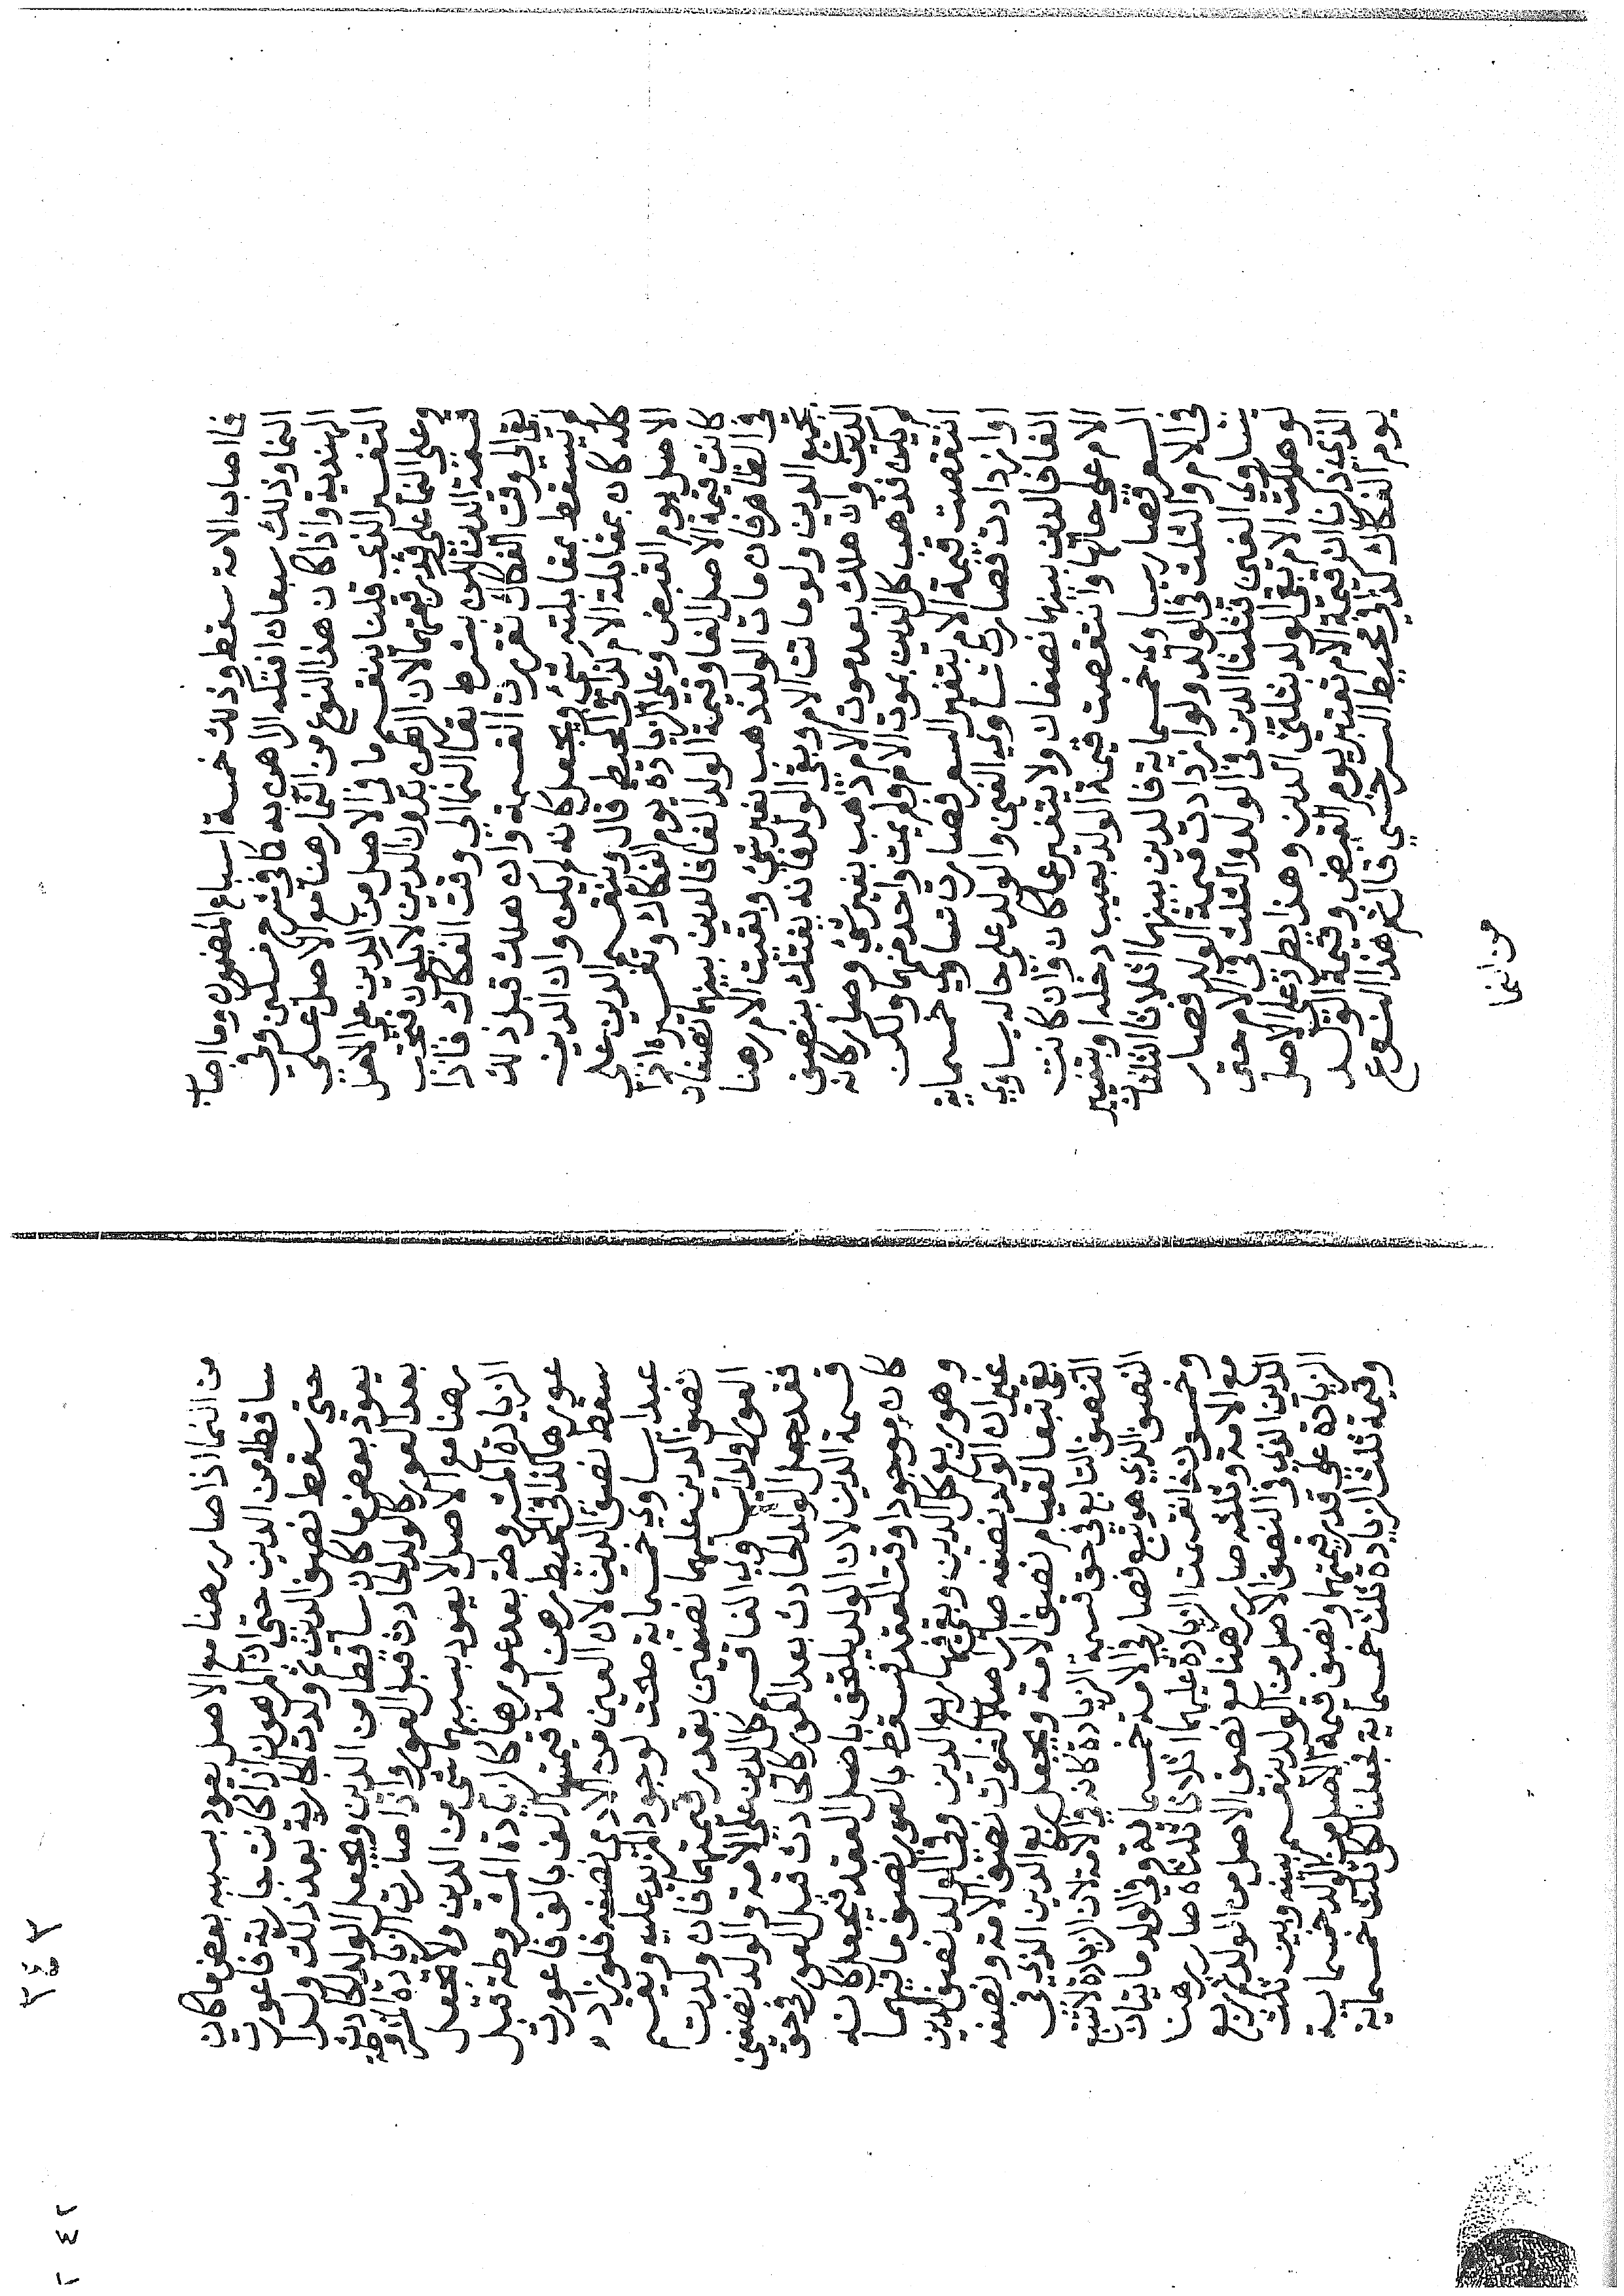 فما اصاب الامة سقط وذلك خمسة اسباع المضمون وما اصاب
النما وذلك سبعان افتكه الراهن به كما في شرح مسكين وفي
الهندية واذا كان هذا النوع من النما رهنا مع الاصل على
التفسير الذي قلنا ينقسم ما في الاصل من الدين على الاصل
وعلى النما على قدر قيمتهما لان الرهن بدون الدين لا يكون فتجب
قسمة الدين لكن بشرط بقا النما الى وقت الفكاك فاذا
بقي الى وقت الفكاك تقررت القسمة وان هلك قبل ذلك
لم يسقط بمقابلته شي ويجعل كانه لم يكن وان الدين
كله كان بمقابلة الام كذا في المحيط قال وينقسم الدين على
الاصل يوم القبض وعلى الزيادة يوم الفكاك وتفسيره اذا
كانت قيمة الاصل الفا وقيمة الولد الفا فالدين بينهما نصفان
في الظاهر فان مات الولد ذهب بغير شي وبقيت الام رهنا
بجميع الدين ولو ماتت الام وبقي الولد فانه يفتك بنصف
الدين وان هلك بعد موت الام ذهب بغير شي وصار كانه
لم يكن فذهب كل الدين بموت الام ولو لم يمت واحد منهما ولكن
انتقصت قيمة الام بتغير السعر فصارت تساوي خمسماية
او ازدادت فصارت تساوي الفين والولد على حاله يساوي
الفا فالدين بينهما نصفان ولا يتغير عما كان وان كانت
الام على حالها وانتقصت قيمة الولد بعيب دخله او بتغيير
السعر فصار يساوي خمسماية فالدين بينهما اثلاثا الثلثان
في الام والثلث في الولد ولو ازدادت قيمة الولد فصار
يساوي الفين فثلثا الدين في الولد والثلث في الام حتى
لو هلكت الام بقي الولد بثلثي الدين وهذا يطرد على الاصل
الذي ذكرنا ان قيمة الام تعتبر يوم القبض وقيمة الولد
يوم الفكاك كذا في محيط السرخسي قال ثم هذا النوع
من النما
من النما اذا صار رهنا مع الاصل يعود بسببه بعض ما كان
ساقطا من الدين حتى ان المرهون اذا كانت جارية فاعورت
حتى سقط نصف الدين ثم ولدت الجارية بعد ذلك ولدا
يعود بعض ما كان ساقطا من الدين ويجعل الولد الحادث
بعد العور كالولد الحادث قبل العور واذا صارت الزيادة المشروطة
رهنا مع الاصل لا يعود بسببها شي من الدين ولا تجعل
الزيادة المشروطة بعد عورها كالزيادة المشروطة قبل
عورها كذا في المحيط رهن امة قيمتها الف بالف فاعورت
سقط نصف الدين لان العين من الادمي نصفه فلو زاد
عبدا يساوي خمسماية صحت لوجود المزيد عليه ويقسم
نصف الدين عليهما نصفين بقدر قيمتهما فان ولدت
العورا ولدا يساوي الفا قسم كل الدين على الامة والولد نصفين
فقد جعل الولد الحادث بعد العور كالحادث قبل العور في حق
قسمة الدين لان الولد يلتحق باصل العقد فيجعل كانه
كان موجودا وقت العقد فسقط بالعور نصف ما فيهما
وهو ربع كل الدين وبقي فيها ربع الدين وفي الولد نصف الدين
غير ان الولد نصفه صار اصلا لفوت نصف الامة ونصفه
بقي تبعا لقيام نصف الامة ويجعل ربع الدين الذي في
النصف التابع في حق قسمة الزيادة كانه في الامة لان الزيادة لا تتبع
النصف الذي هو تبع فصار في الامة خمسماية وفي الولد مايتان
وخمسون فانقسمت الزيادة عليهما اثلاثا ثلثاه صار رهنا
مع الامة وثلثه صار رهنا مع نصف الاصل من الولد ثم ربع
الدين الذي في النصف الاصل من الولد ينقسم بينه وبين ثلث
الزيادة على قدر قيمتهما ونصف قيمة الاصل من الولد خمسماية
وقيمة ثلث الزيادة ثلث خمسماية فجعلنا كل ثلث خمسماية
٢٤٢